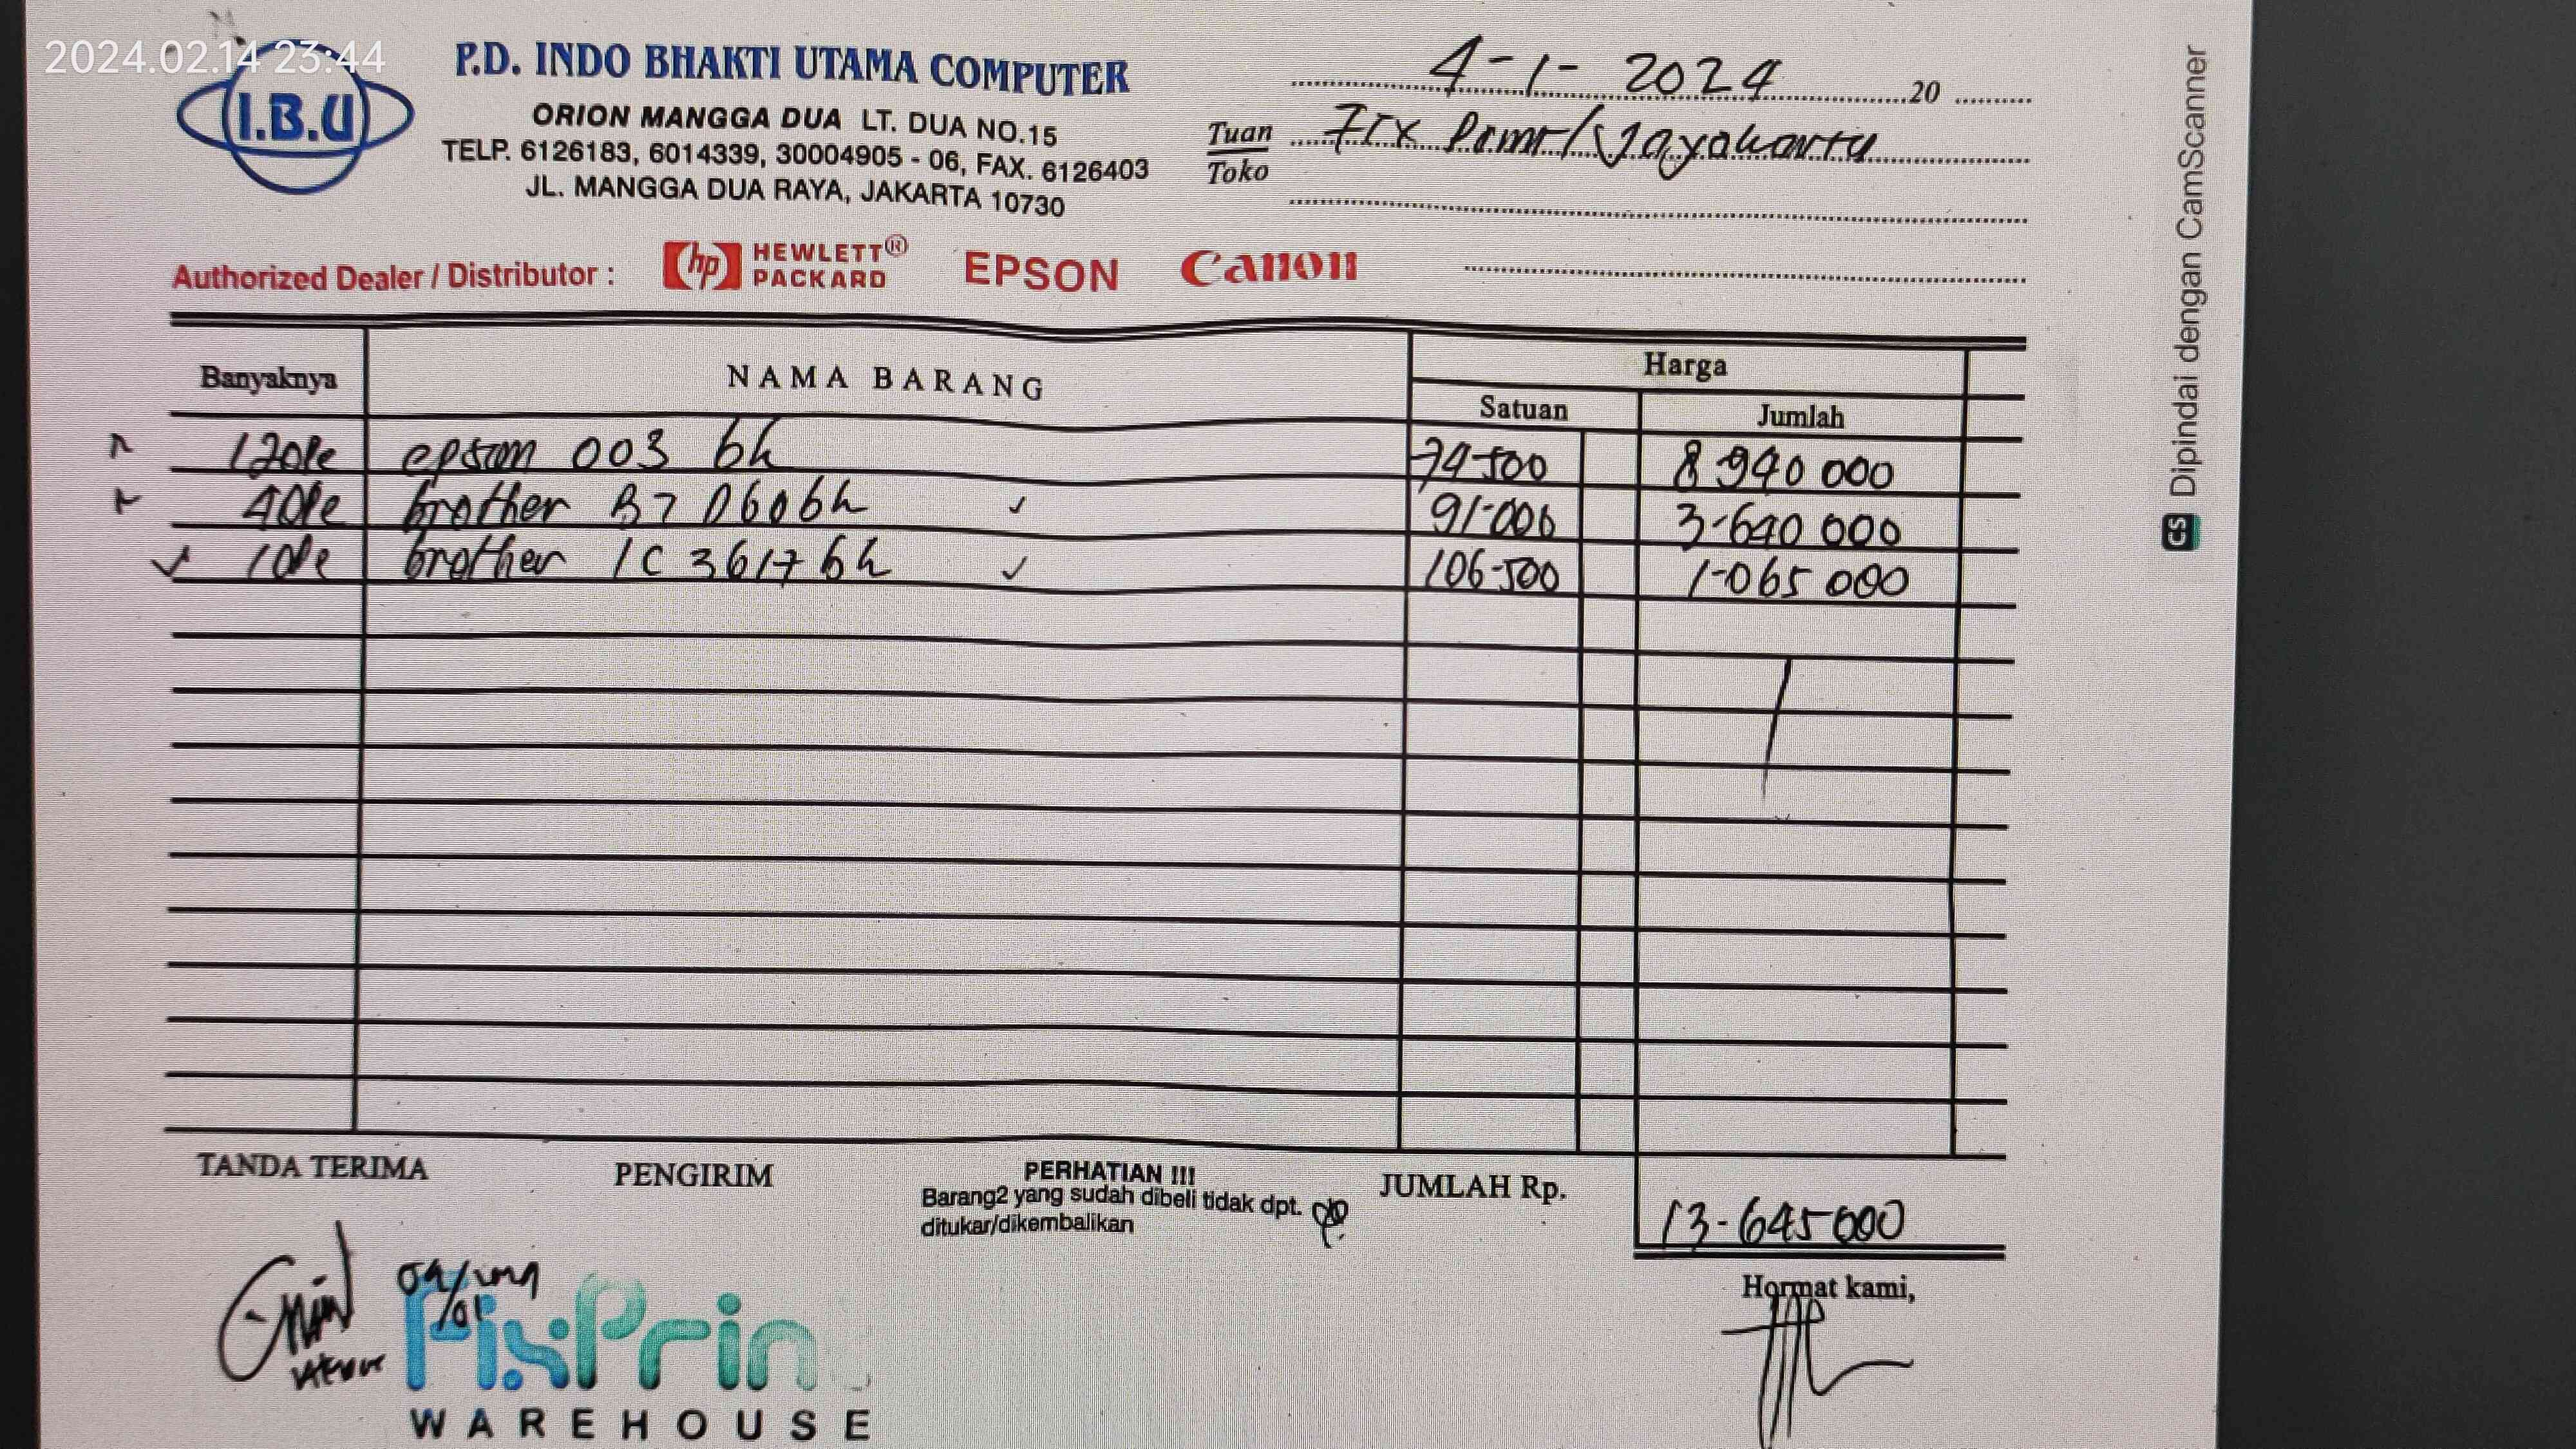 2024.02.14 23:44
I.B.U
P.D. INDO BHAKTI UTAMA COMPUTER
ORION MANGGA DUA LT. DUA NO.15
TELP. 6126183, 6014339, 30004905 - 06, FAX. 6126403
JL. MANGGA DUA RAYA, JAKARTA 10730
4-1-2024 20
Tuan
Toko
Jayakarta
Authorized Dealer / Distributor : hp HEWLETT® PACKARD EPSON Canon
Banyaknya NAMA BARANG Harga
Satuan Jumlah
120 epson 003 bk 74-500 8-940 000
40 brother B7 D60 bk 91-000 3-640 000
10 brother LC 3617 bk 106-500 1-065 000
TANDA TERIMA PENGIRIM PERHATIAN !!! JUMLAH Rp. 13-645 000
Barang2 yang sudah dibeli tidak dpt.
ditukar/dikembalikan
Hormat kami,
FixPrin
WAREHOUSE
CS Dipindai dengan CamScanner